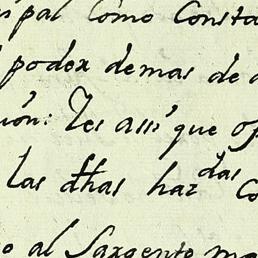 pal como Consta
podex demas de
ion: Y es assi que
las dhas haz.das Co
al Sargento ma